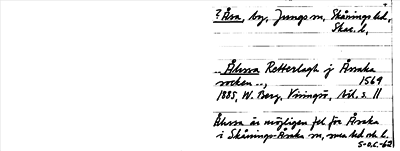 ? Åsa, by, Jungs sn, Skånings hd,
Skar. l.
.. Åhssa Retterlagh j Åssaka
socken .., 1569
1885, W. Berg, Visingsö, bil. s. 11
Åhssa är möjligen fel för Åsaka
i Skånings-Åsaka sn, sma hd och l.
S-O.L.-62